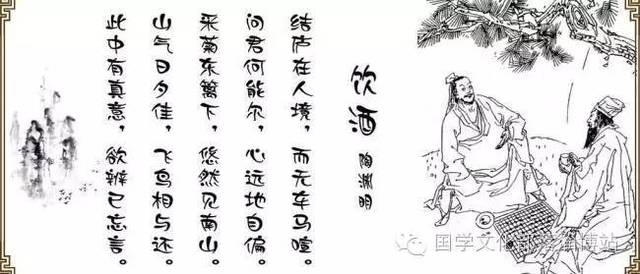 饮酒 陶渊明
结庐在人境，而无车马喧。
问君何能尔，心远地自偏。
采菊东篱下，悠然见南山。
山气日夕佳，飞鸟相与还。
此中有真意，欲辨已忘言。
国学文化部落淄博站